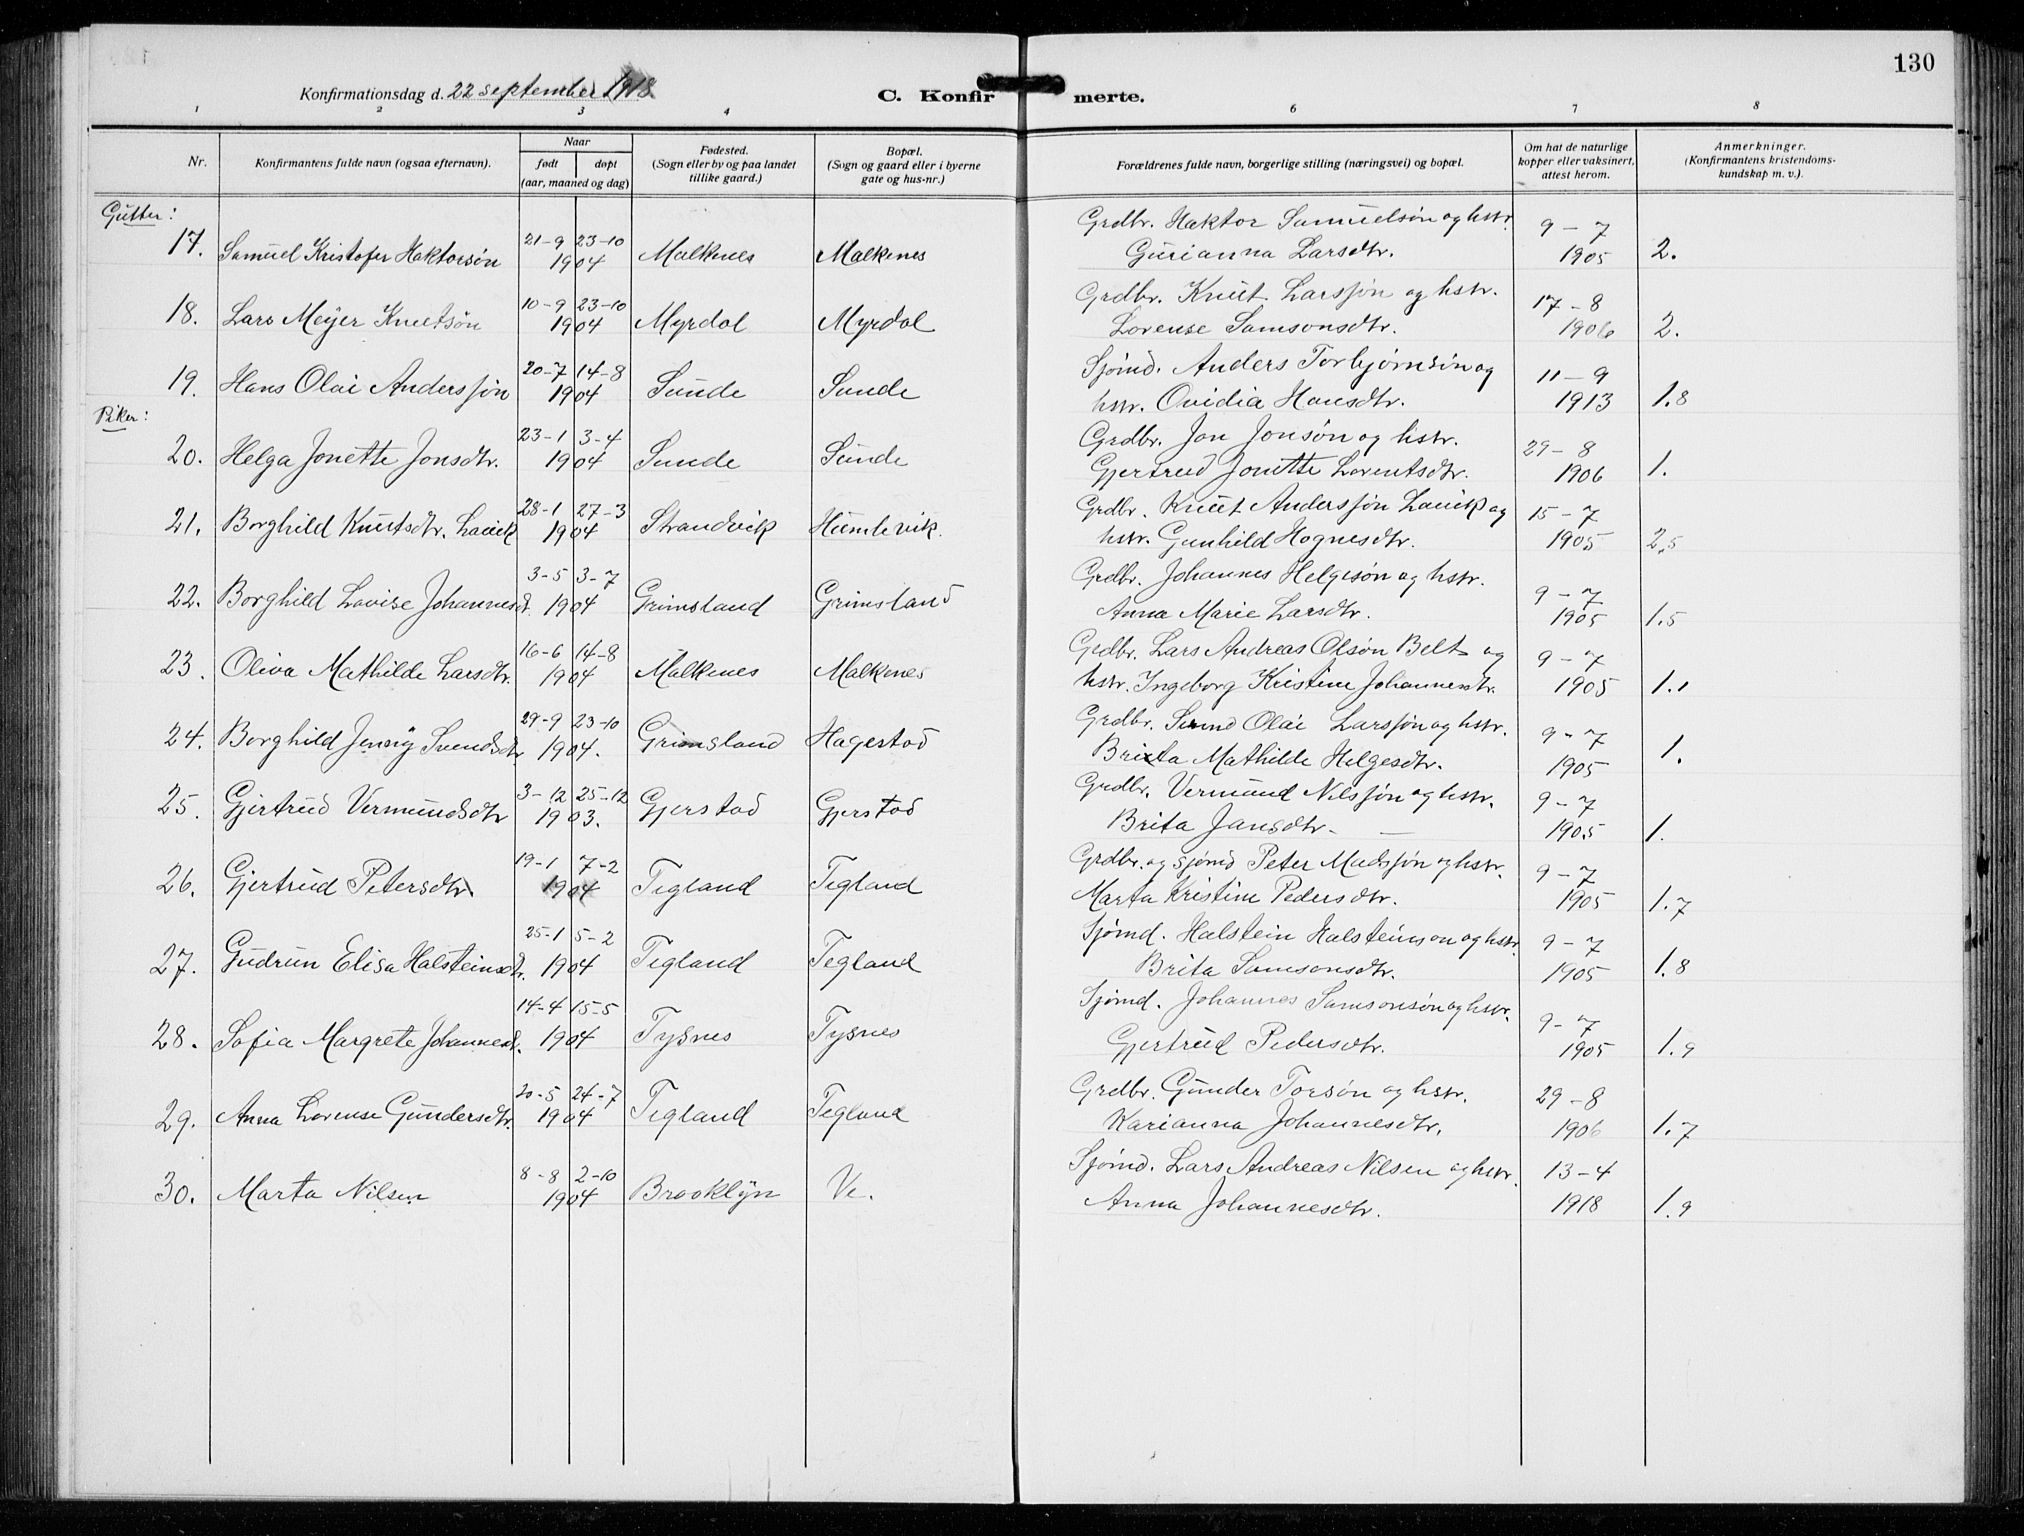 130
Konfirmationsdag d. 22 september 1918
C. Konfirmerte.
1 2 3 4 5 6 7 8
Nr.
Konfirmantens fulde navn (ogsaa efternavn).
Naar
født døpt
(aar, maaned og dag)
Fødested.
(Sogn eller by og paa landet
tillike gaard.)
Bopæl.
(Sogn og gaard eller i byerne
gate og hus-nr.)
Forældrenes fulde navn, borgerlige stilling (næringsvei) og bopæl.
Om hat de naturlige
kopper eller vaksinert,
attest herom.
Anmerkninger.
(Konfirmantens kristendoms-
kundskap m. v.).
Gutter:
21-9 23-10 Grdbr. Haktor Samuelsøn og hstr. 9-7
17. Samuel Kristofer Haktorsøn 1904 Malkenes Malkenes Gurianna Larsdtr. 1905 2.
10-9 23-10 Grdbr. Knut Larssøn og hstr. 17-8
18. Lars Meyer Knutsøn 1904 Myrdal Myrdal Lorense Samsonsdtr. 1906 2.
20-7 14-8 Sjømd. Anders Torbjørnsøn og 11-9
19. Hans Olai Anderssøn 1904 Sunde Sunde hstr. Ovidia Hansdtr. 1913 1.8
Piker:
23-1 3-4 Grdbr. Jon Jonsøn og hstr. 29-8
20. Helga Jonette Jonsdtr. 1904 Sunde Sunde Gjertrud Jonette Lorentsdtr. 1906 1.
28-1 27-3 Grdbr. Knut Anderssøn Lauik og 15-7
21. Borghild Knutsdtr. Lauik 1904 Strandvik Humlevik. hstr. Gunhild Hognesdtr. 1905 2,5
3-5 3-7 Grdbr. Johannes Helgesøn og hstr. 9-7
22. Borghild Lovise Johannesd. 1904 Grimsland Grimsland Anna Marie Larsdtr. 1905 1.5
16-6 14-8 Grdbr. Lars Andreas Olsøn Belt og 9-7
23. Oliva Mathilde Larsdtr. 1904 Malkenes Malkenes hstr. Ingeborg Kristine Johannesdtr. 1905 1.1
29-9 23-10 Grdbr. Svend Olai Larssøn og hstr. 9-7
24. Borghild Jenny Svendsdtr 1904. Grimsland Hagestad Brita Mathilde Helgesdtr. 1905 1.
3-12 25-12 Grdbr. Vermund Nilssøn og hstr. 9-7
25. Gjertrud Vermundsdtr 1903. Gjerstad Gjerstad Brita Jansdtr. 1905 1.
19-1 7-2 Grdbr. og sjømd Peter Madssøn og hstr. 9-7
26. Gjertrud Petersdtr 1904 Tegland Tegland Marta Kristine Pedersdtr. 1905 1.7
25-1 5-2 Sjømd. Halstein Halsteinson og hstr. 9-7
27. Gudrun Elisa Halsteinsdtr. 1904 Tegland Tegland Brita Samsonsdtr. 1905 1.8
14-4 15-5 Sjømd. Johannes Samsonsøn og hstr. 9-7
28. Sofia Margrete Johannesd. 1904 Tysnes Tysnes Gjertrud Pedersdtr. 1905 1.9
20-5 24-7 Grdbr. Gunder Torsøn og hstr. 29-8
29. Anna Lorense Gundersdtr. 1904 Tegland Tegland Karianna Johannesdtr. 1906 1.7
8-8 2-10 Sjømd. Lars Andreas Nilsen og hstr. 13-4
30. Marta Nilsen 1904 Brooklyn Ve. Anna Johannesdtr. 1918 1.9